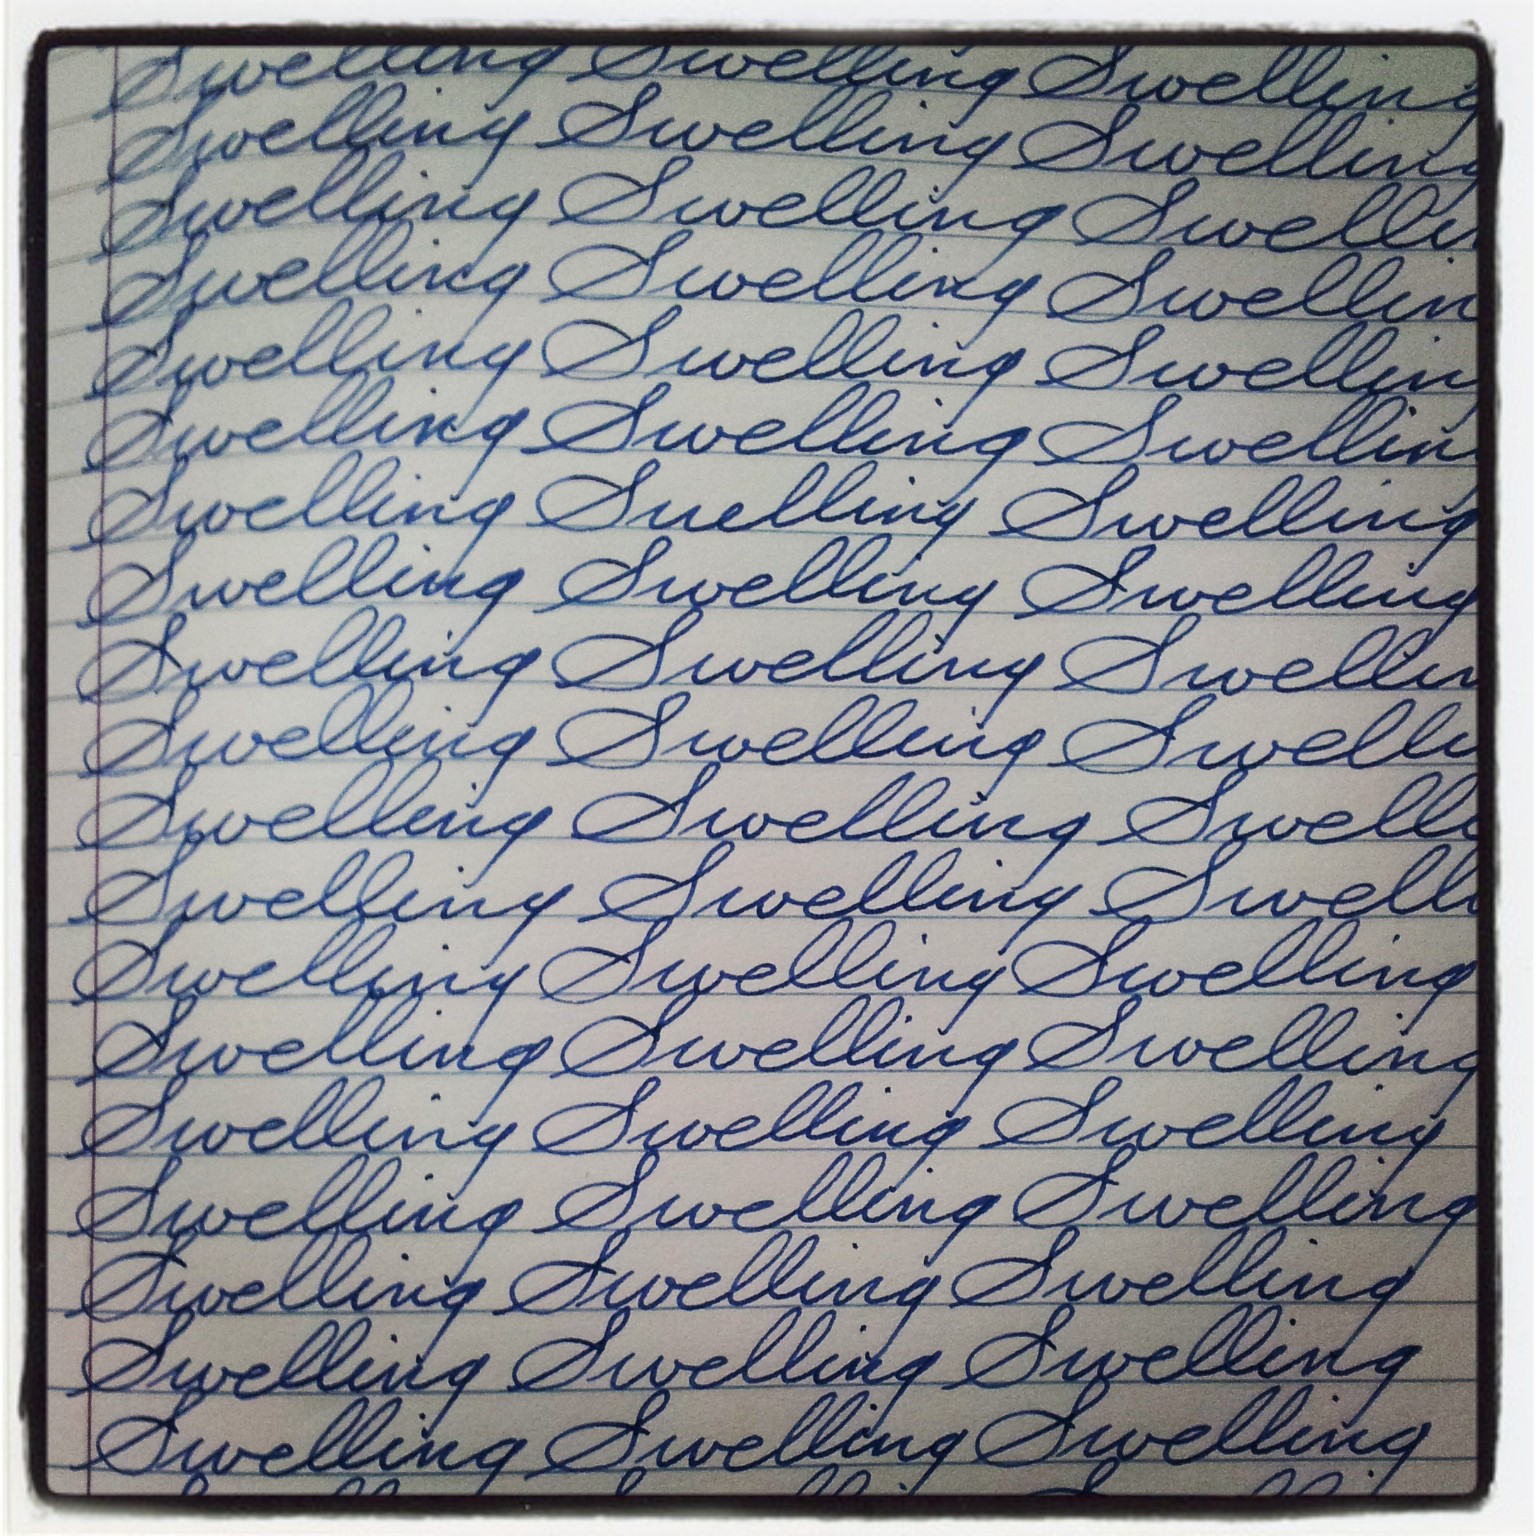 Swelling Swelling Swelling
Swelling Swelling Swelling
Swelling Swelling Swelli
Swelling Swelling Swellin
Swelling Swelling Swelling
Swelling Swelling Swellin
Swelling Suelling Swelling
Swelling Swelling Swelling
Swelling Swelling Swellin
Swelling Swelling Swelli
Swelling Swelling Swelli
Swelling Swelling Swelli
Swelling Swelling Swelling
Swelling Swelling Swelling
Swelling Swelling Swelling
Swelling Swelling Swelling
Swelling Swelling Swelling
Swelling Swelling Swelling
Swelling Swelling Swelling